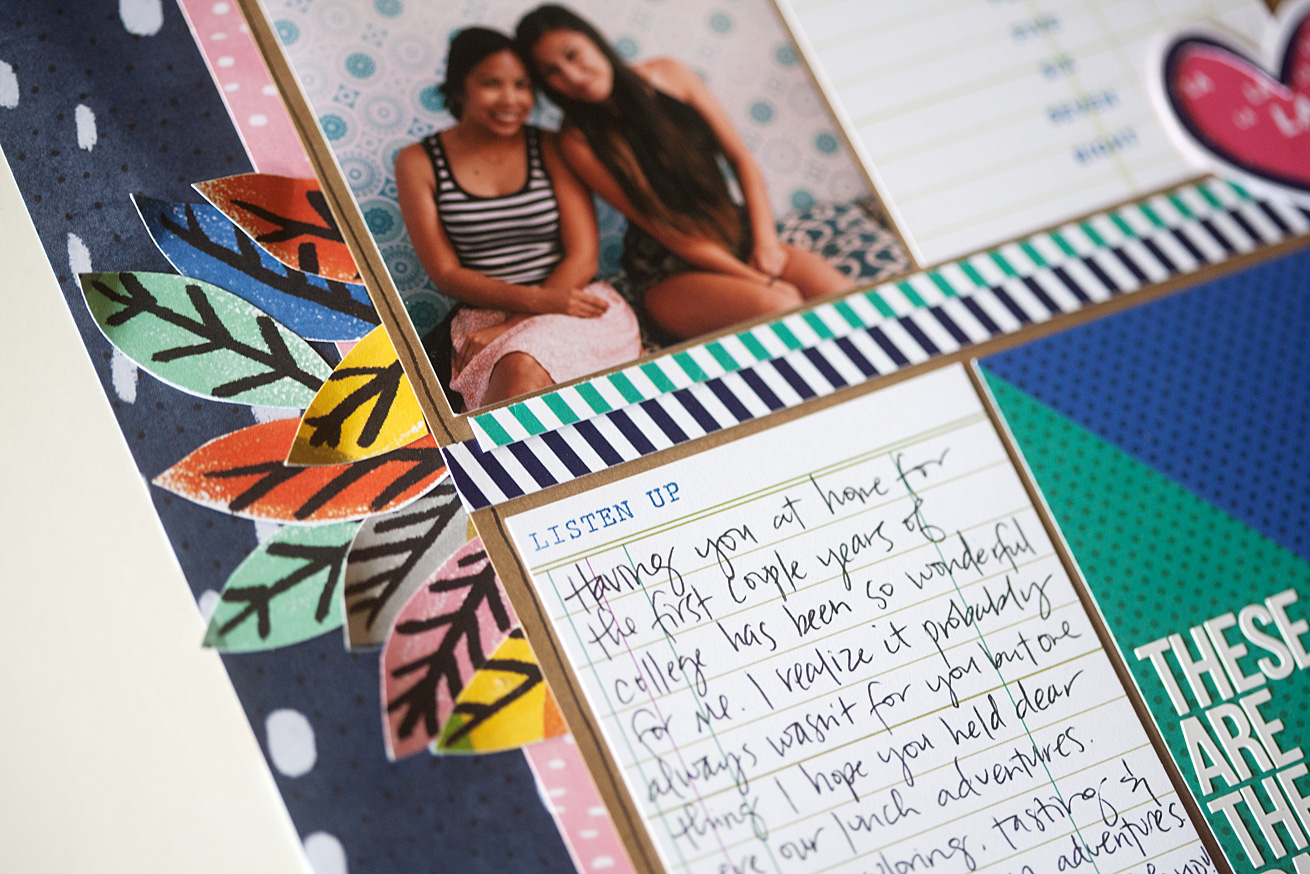 EIGHT
LISTEN UP
Having you at home for
the first couple years of
college has been so wonderful
for me. I realize it probably
always wasn't for you but one
thing I hope you held dear
are our lunch adventures.
tasting &
adventures.
THESE
ARE
THE